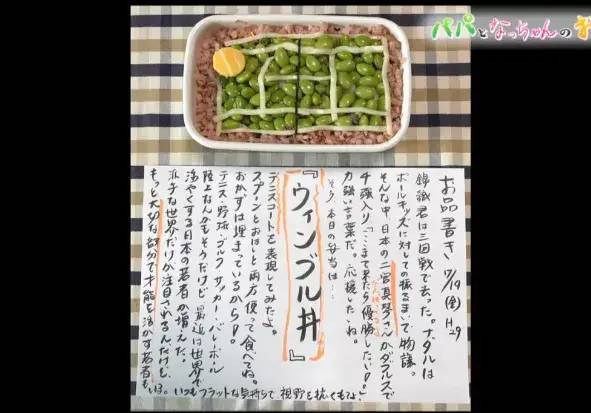 パパとなっちゃんのお
お品書き 7/14(金) H29
錦織君は三回戦で去った。ナダルは
ボールキッズに対しての振るまいで物議。
そんな中、日本の二宮真琴さんがダブルスで
4強入り「ここまで来たら優勝したい!」
力強い言葉だ。応援したいね。
そう 本日の弁当は…
『ウィンブル丼』
テニスコートで表現してみたよ。
スプーンとおはしと両方使って食べてね。
おかずは埋まっているから!
テニス・野球・ゴルフ サッカー・バレーボール
陸上なんかもそうだけど、最近は世界で
活やくする日本の若者が増えた。
派手な世界だけが注目されるんだけど、
もっと大切な部分で才能を活かす若者もいる。
いつもフラットな気持ちで、視野を拡くもてよ!